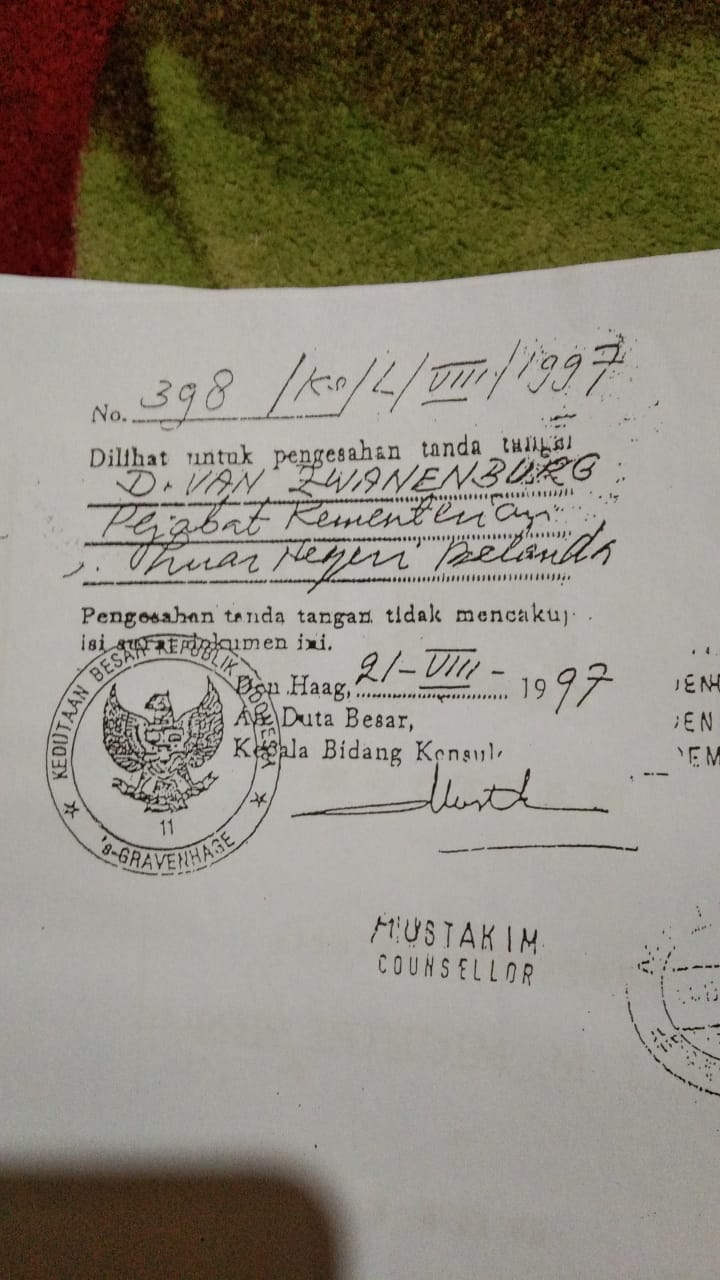 No. 398 /Ko/L/VIII/1997
Dilihat untuk pengesahan tanda tangan
D. VAN ZWANENBURG
Pejabat Kementerian
Luar Negeri Belanda
Pengesahan tanda tangan tidak mencakup
isi surat/dokumen ini.
Den Haag, 21-VIII-1997
An. Duta Besar,
Kepala Bidang Konsul
KEDUTAAN BESAR REPUBLIK INDONESIA
11
's-GRAVENHAGE
MUSTAKIM
COUNSELLOR